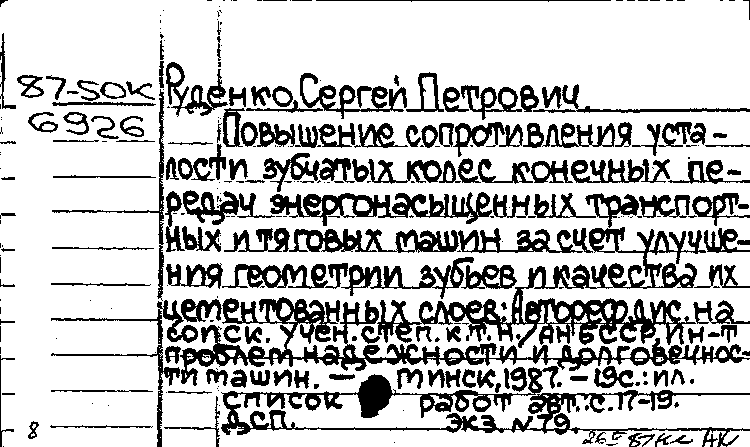 87-50К Руденко, Сергей Петрович.
6926 Повышение сопротивления уста-
лости зубчатых колес конечных пе-
редач энергонасыщенных транспорт-
ных и тяговых машин за счет улучше-
ния геометрии зубьев и качества их
цементованных слоев: Автореф. дис. на
соиск. учен. степ. к.т.н. / АН БССР, Ин-т
проблем надежности и долговечнос-
ти машин. — Минск, 1987. – 19с.: ил.
Список работ авт.: с. 17-19.
Дсп. Экз. №79.
8 АК